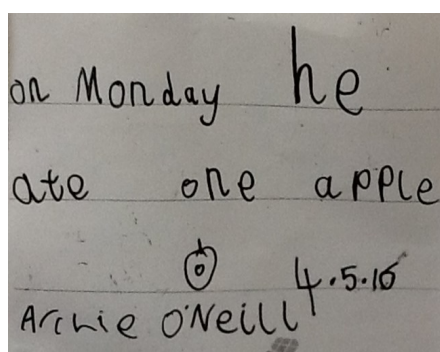 on Monday he
ate one apple
4.5.16
Archie O'Neill